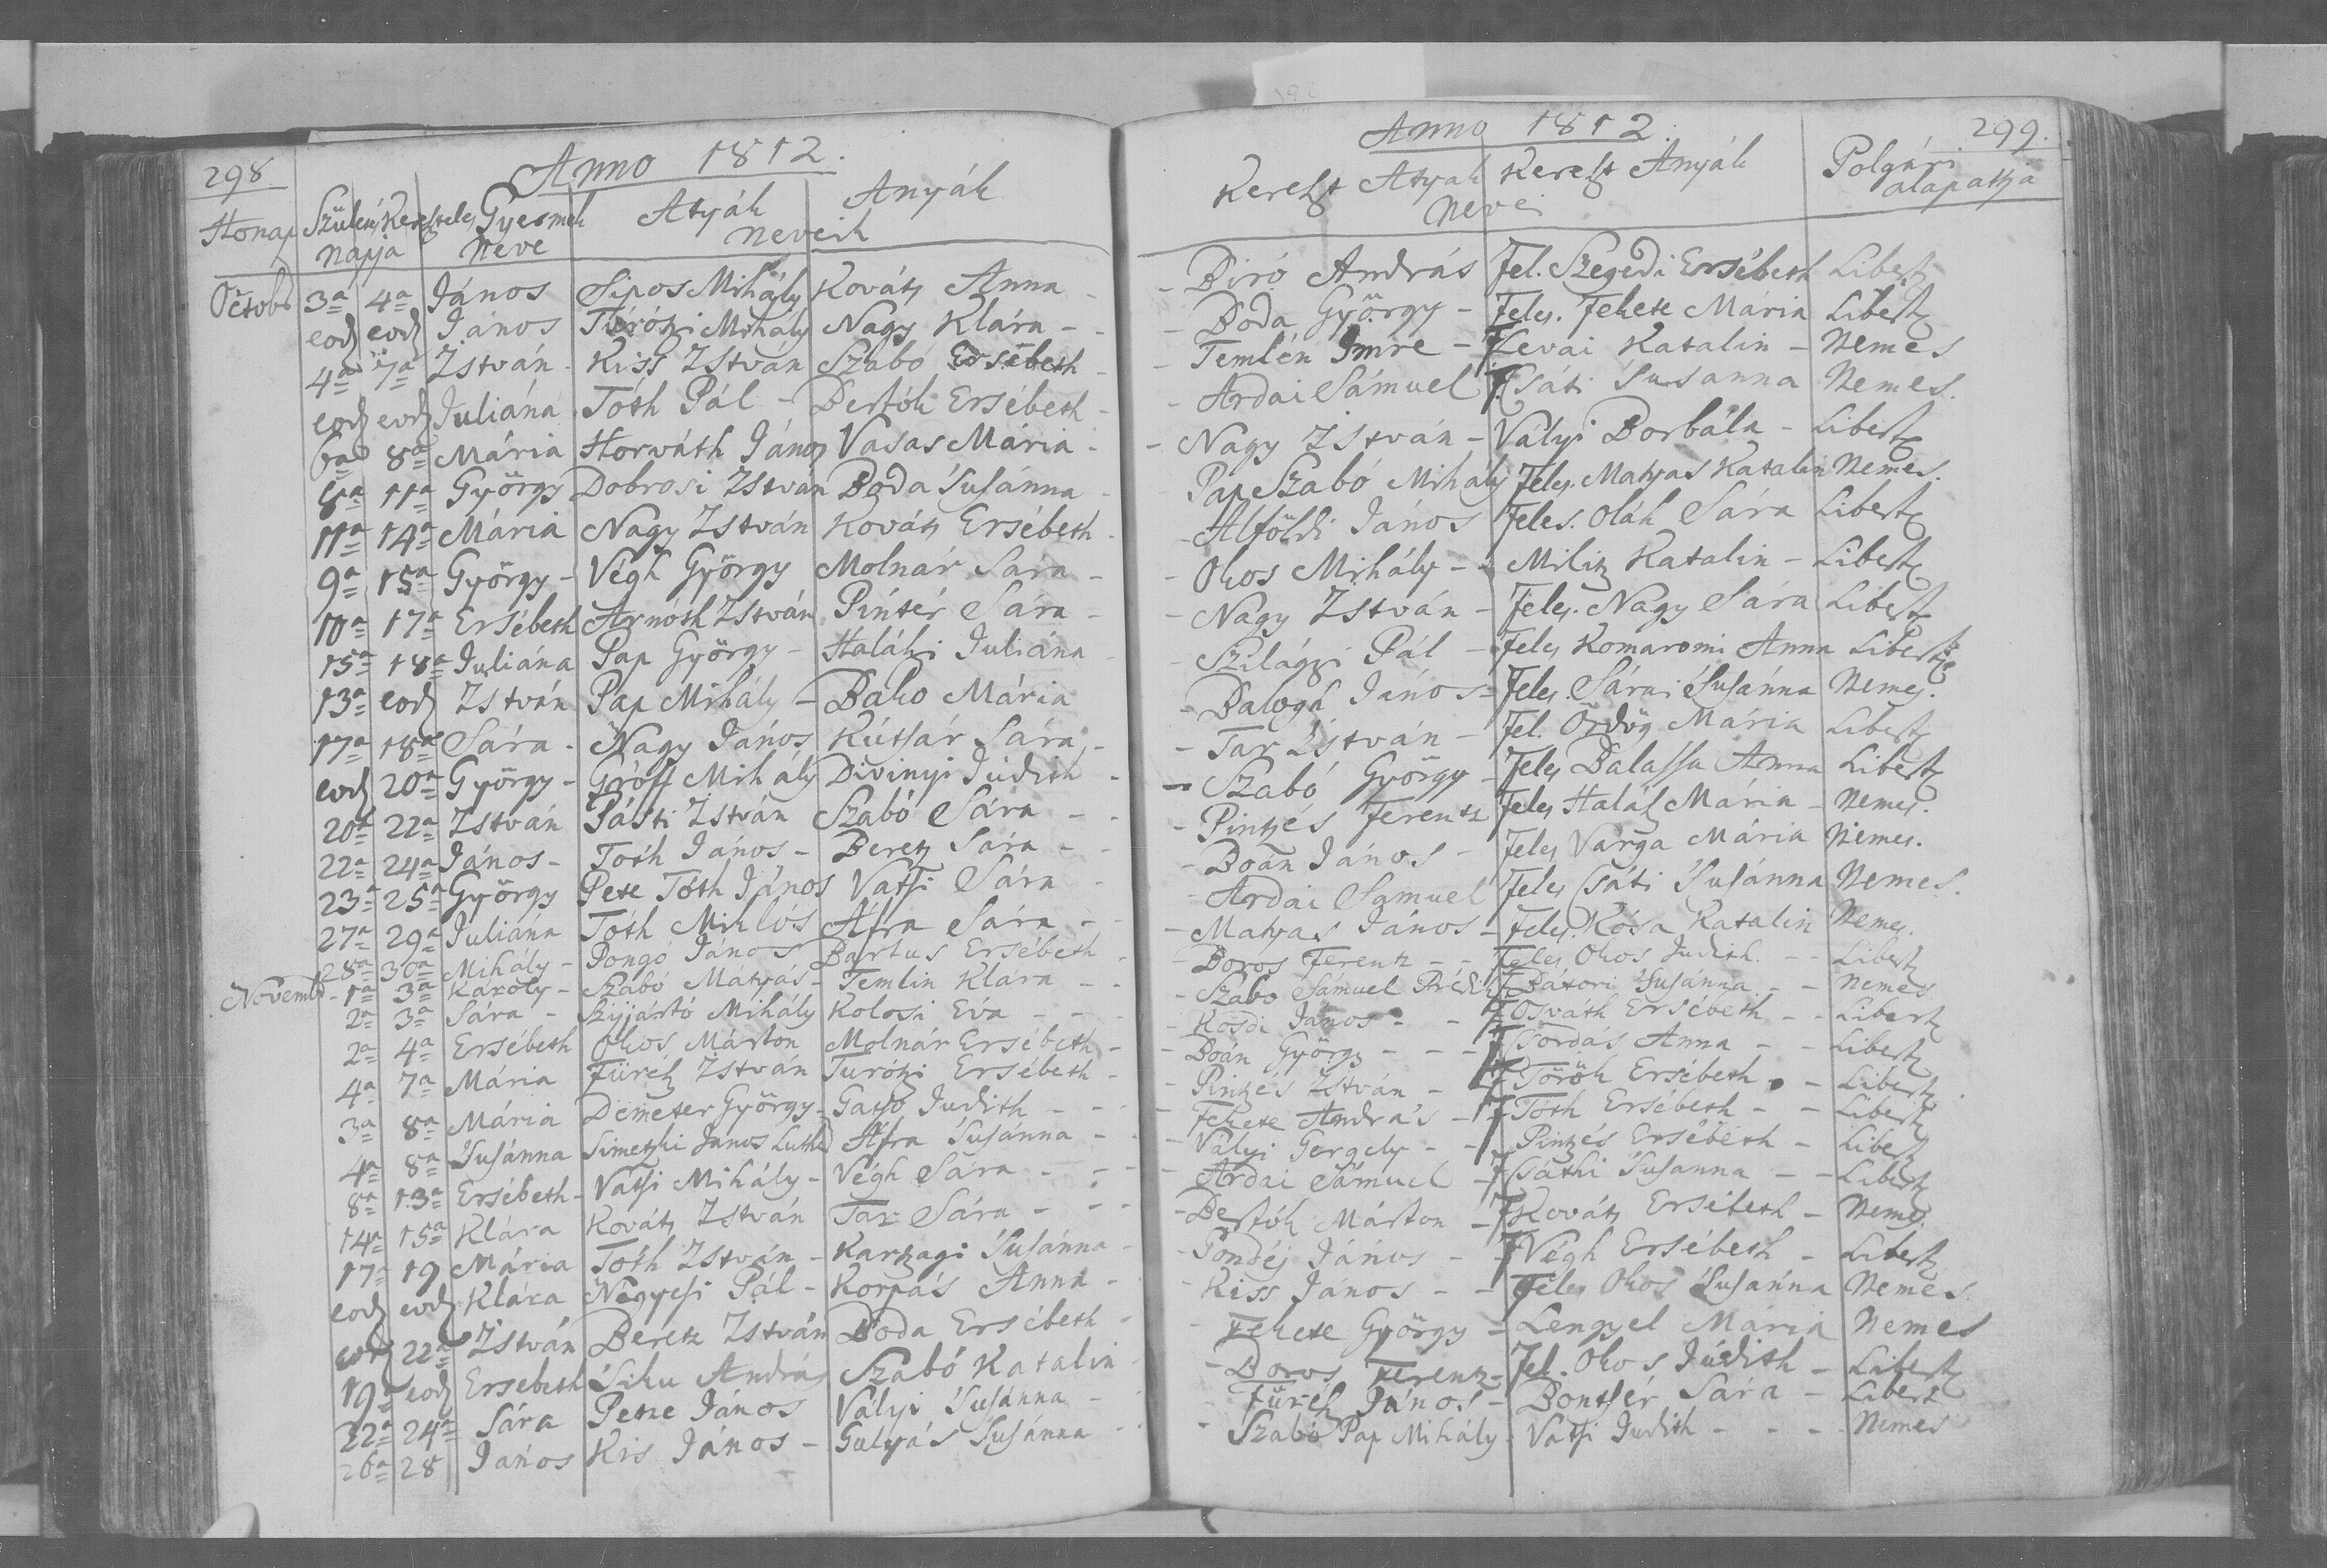 298.
Anno 1812.
Honap Születés Keresztelés Gyermek Atyák Anyák
napja Neve Neveik
Octobr 3a 4a János Sipos Mihály Kováts Anna -
eod eod János Turótzi Mihály Nagy Klára - -
4a 7a István - Kiss István Szabó Ersébeth -
eod eod Juliána Tóth Pál - Bertók Ersébeth -
6a 8a Mária Horváth János Vasas Mária -
8a 11a György Dobrosi István Boda Susánna -
11a 14a Mária Nagy István Kováts Ersébeth -
9a 15a György - Végh György Molnár Sára -
10a 17a Ersébeth Arnóth István Pintér Sára -
15a 18a Juliána Pap György - Halátzi Juliána
13a eod István Pap Mihály - Bako Mária
17a 18a Sára - Nagy János Kútsár Sára -
eod 20a György - Gróff Mihály Divinyi Júdith -
20a 22a István Pásti István Szabó Sára - -
22a 24a János - Tóth János - Beretz Sára - -
23a 25a György Pete Tóth János Vatsi Sára -
27a 29a Juliána Tóth Miklós Áfra Sára - -
28a 30a Mihály - Pongó János Bartus Ersébeth -
Novembr - 1a 3a Károly - Szabó Mátyás - Temlin Klára - -
2a 3a Sára - Szijjártó Mihály Kolosi Éva - - -
2a 4a Ersébeth Okos Márton Molnár Ersébeth -
4a 7a Mária Türék István Turótzi Ersébeth -
3a 8a Mária Demeter György - Gatsó Judith - -
4a 8a Susánna Simetzki Janos Luther Áfra Susánna - -
8a 13a Ersébeth - Vatsi Mihály - Végh Sára - - -
14a 15a Klára Kováts István Tar Sára - - -
17a 19 Mária Tóth István - Kartzagi Susánna -
eod eod Klára Négyesi Pál - Korpás Anna -
eod 22a István Beretz István Boda Ersébeth -
19a eod Ersebeth Siku András Szabó Katalin -
22a 24a Sára Petze János Vályi Susánna -
26a 28 János Kis János - Gulyás Susánna -
Anno 1812. 299.
Kereszt Atyák Kereszt Anyák Polgári
Nevei alapattya
- Biró András Fel. Szegedi Ersébeth Libert
- Boda György - Feles. Fekete Mária Libert
- Temlén Imre - F Levai Katalin - Nemes
- Ardai Sámuel F. Csáti Susanna Nemes.
- Nagy István - Vályi Borbála - Libert
Pap Szabó Mihály Feles. Matyas Katalin Nemes.
- Alföldi János Feles. Oláh Sára Libert
- Okos Mihály - - Militz Katalin - Libert
- Nagy István - Feles. Nagy Sára Libert
- Szilágyi Pál - Feles Komaromi Anna Libert
- Balogh János - Feles. Sárai Susánna Nemes.
- Tar István - Fel. Ördög Mária Libert
- Szabó György - Feles Balassa Anna Libert
- Pintzés Ferentz Feles Halász Mária - Nemes.
- Boán János - Feles Varga Mária Nemes.
- Ardai Samuel Feles Csáti Susánna Nemes.
- Matyas János - Feles. Kósa Katalin Nemes.
- Boros Ferentz - - Feles Okos Judith. - - Libert
- Szabo Sámuel Prédik F Bátori Susánna - - Nemes
- Kosdi János - - F Osváth Ersébeth - - Libert
- Boán György - - - F Csordás Anna - - Libert
- Pintzés István - - F Török Ersébeth - - Libert
- Fekete András - F Tóth Ersébeth - - Libert
- Vályi Gergely - - F Pintzés Ersébeth - Libert
- Ardai Sámuel - F Csáthi Susanna - - Libert
- Bertók Márton - F Kováts Ersébeth - Nemes.
- Pondéj János - - F Végh Ersébeth - Libert
- Kiss János - - Feles Okos Susánna Nemes.
- Fekete György - Lengyel Mária Nemes
- Boros Ferentz - Fel. Okos Júdith - Libert
Türék János - Bontsér Sára - Libert
- Szabó Pap Mihály - Vatsi Judith - - - Nemes